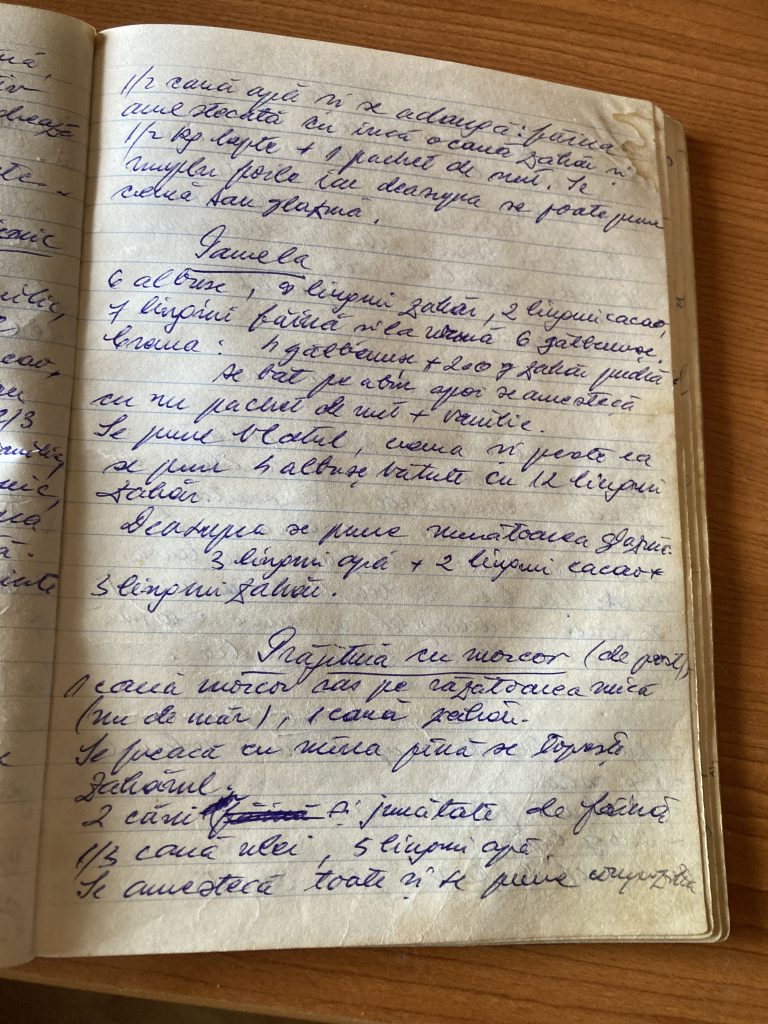 nă,
1/2 cană apă și se adaugă: făina
amestecată cu încă o cană zahăr și
1/2 kg lapte + 1 pachet de unt. Se
umplu foile iar deasupra se poate pune
cremă sau glazură.
Pamela
6 albușe, 7 linguri zahăr, 2 linguri cacao,
7 linguri făină și la urmă 6 gălbenușe.
Crema: 4 gălbenușe + 200 g zahăr pudră
se bat pe abur apoi se amestecă
cu un pachet de unt + vanilie.
Se pune blatul, crema și peste ea
se pun 4 albușe bătute cu 12 linguri
zahăr
Deasupra se pune următoarea glazură.
3 linguri apă + 2 linguri cacao +
3 linguri zahăr.
Prăjitură cu morcov (de post)
1 cană morcov ras pe răzătoarea mică
(nu de măr), 1 cană zahăr.
Se freacă cu mîna pînă se topește
zahărul.
2 căni și jumătate de făină
1/3 cană ulei, 5 linguri apă
Se amestecă toate și se pune compoziția